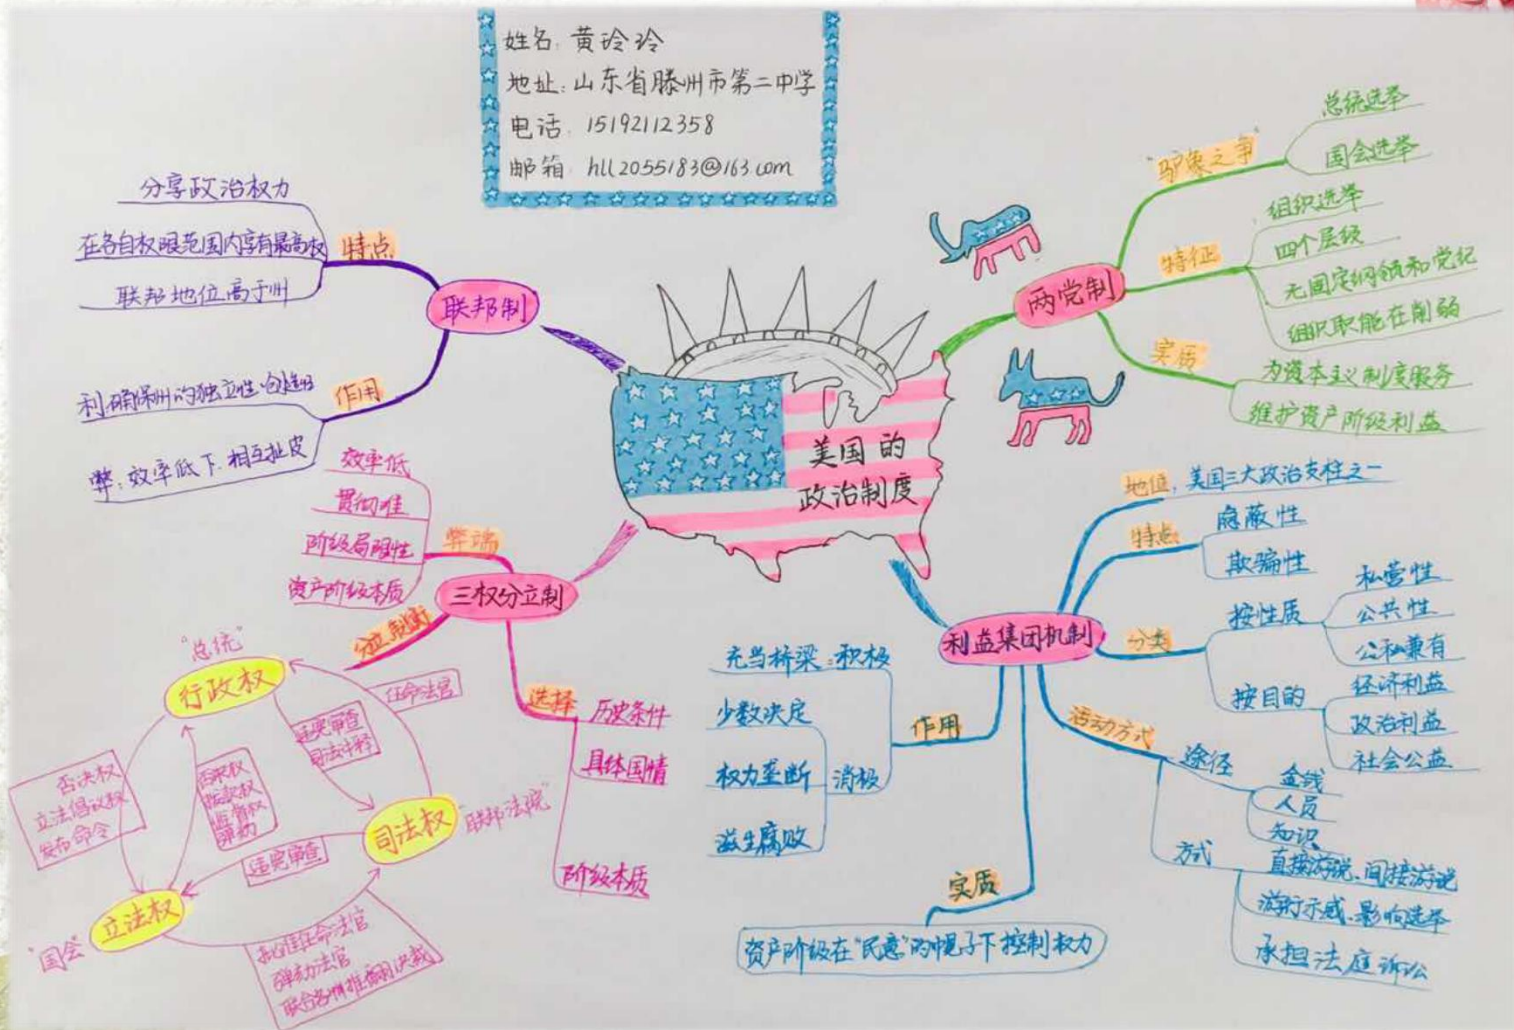 姓名: 黄玲玲
地址: 山东省滕州市第二中学
电话: 15192112358
邮箱: hll2055183@163.com
美国的
政治制度
联邦制
特点
分享政治权力
在各自权限范围内享有最高权
联邦地位高于州
作用
利:确保州的独立性
弊: 效率低下.相互扯皮
三权分立制
弊端
效率低
贯彻难
阶级局限性
资产阶级本质
选择
历史条件
具体国情
阶级本质
分立制衡
"总统"
行政权
任命法官
违宪审查
司法审释
否决权
立法倡议权
发布命令
否决权
拨款权
监督权
弹劾
司法权
"联邦法院"
违宪审查
立法权
"国会"
批准任命法官
弹劾法官
联合各州推翻决裁
两党制
"驴象之争"
总统选举
国会选举
特征
组织选举
四个层级
无固定纲领和党纪
组织职能在削弱
实质
为资本主义制度服务
维护资产阶级利益
利益集团机制
地位: 美国三大政治支柱之一
特点
隐蔽性
欺骗性
分类
按性质
私营性
公共性
公私兼有
按目的
经济利益
政治利益
社会公益
活动方式
途径
金钱
人员
知识
方式
直接游说、间接游说
游行示威、影响选举
承担法庭诉讼
作用
充当桥梁:积极
消极
少数决定
权力垄断
滋生腐败
实质
资产阶级在"民意"的幌子下控制权力